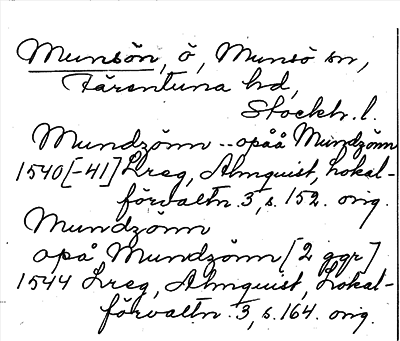 Munsön, ö, Munsö sn,
Färentuna hd,
Stockh. l.
Mundzönn -- opåå Mundzönn
1540[-41] Lreg, Almquist, Lokal-
förvaltn. 3, s. 152. orig.
Mundzönn
opå Mundzönn [2 ggr]
1544 Lreg, Almquist, Lokal-
förvaltn. 3, s. 164. orig.